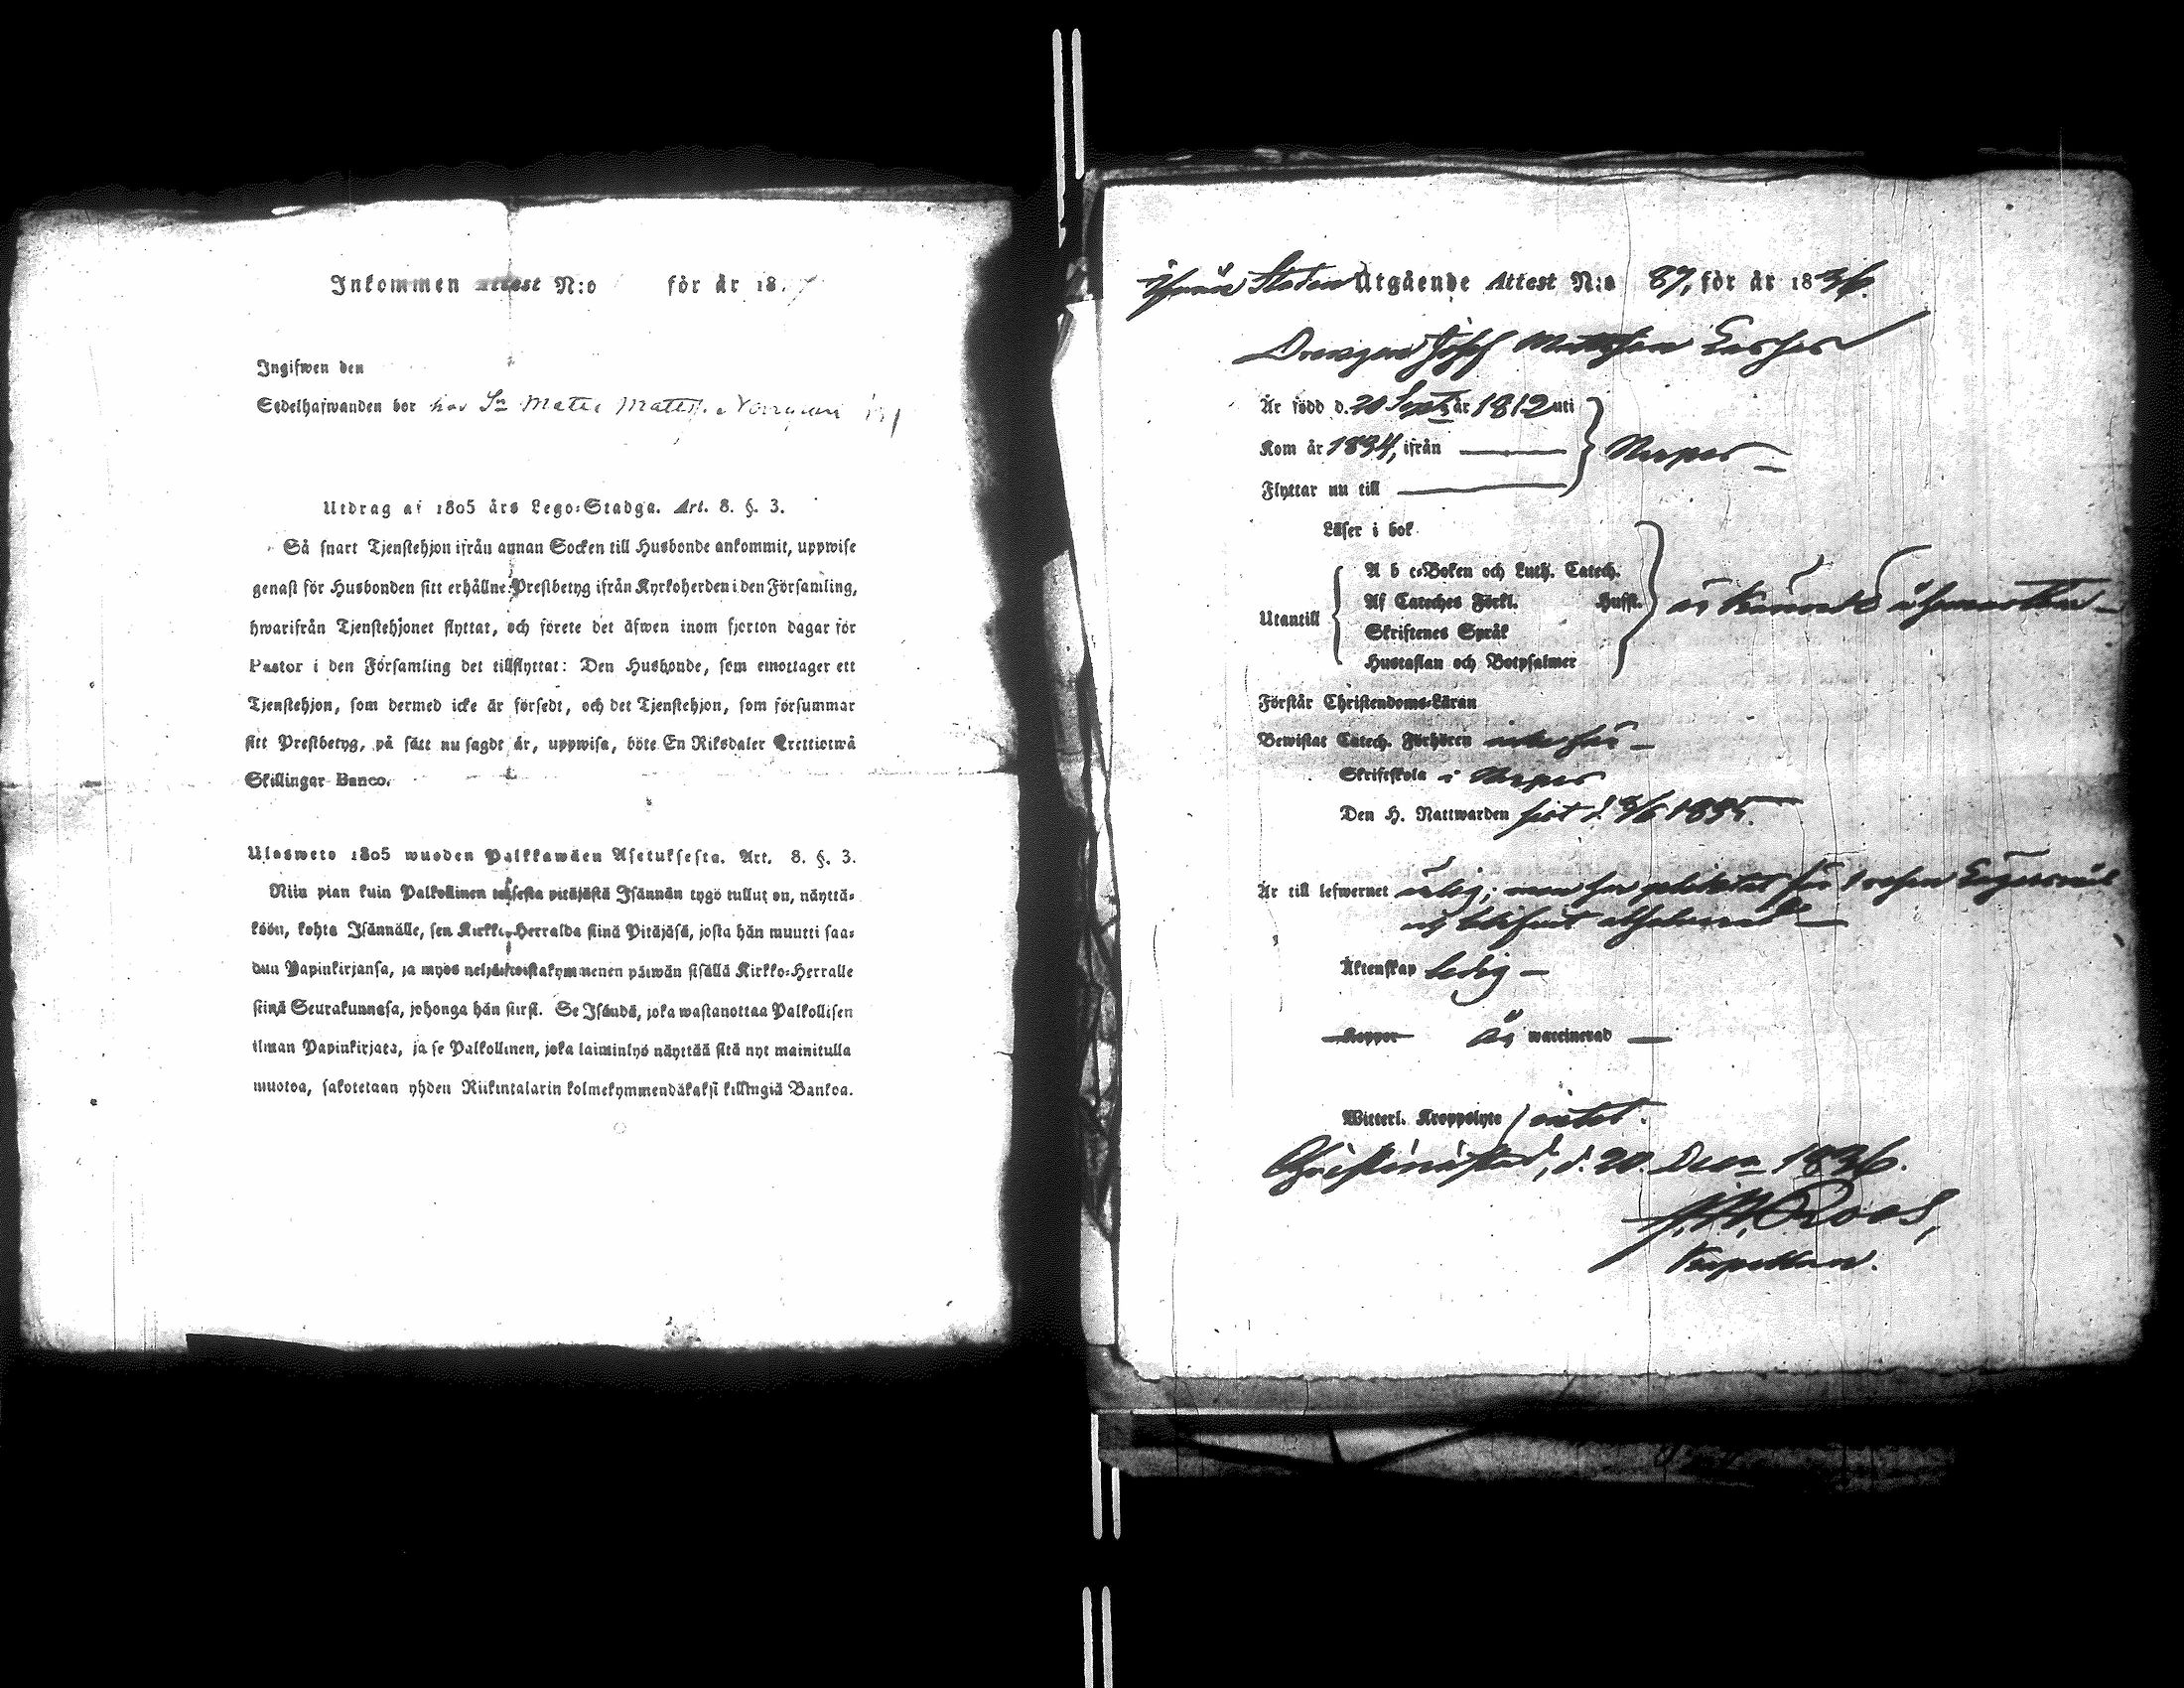 Inkommen Attest N:o för år 18
Ingifwen den
Sedelhafwanden bor hos
Utdrag af 1805 års Lego-Stadga. Art. 8. §. 3.
Så snart Tjenstehjon ifrån annan Socken till Husbonde ankommit, uppwise
genast för Husbonden sitt erhållne Prestbetyg ifrån Kyrkoherden i den Församling,
hwarifrån Tjenstehjonet flyttat, och förete det äfwen inom fjorton dagar för
Pastor i den Församling det tillflyttat: Den Husbonde, som emottager ett
Tjenstehjon, som dermed icke är försedt, och det Tjenstehjon, som försummar
sitt Prestbetyg, på sätt nu sagdt är, uppwisa, böte En Riksdaler Trettiotwå
Skillingar Banco.
Ulosweto 1805 wuoden Palkkawäen Asetuksesta. Art. 8. §. 3.
Niin pian kuin Palkollinen toisesta pitäjästä Isännän tygö tullut on, näyttä-
köön, kohta Isännälle, sen Kirkko-Herralda siinä Pitäjäsä, josta hän muutti saa-
dun Papinkirjansa, ja myös neljäntoistakymmenen päiwän sisällä Kirkko-Herralle
siinä Seurakunnasa, johonga hän siirsi. Se Isändä, joka wastanottaa Palkollisen
ilman Papinkirjata, ja se Palkollinen, joka laiminlyö näyttää sitä nyt mainitulla
muotoa, sakotetaan yhden Riikintalarin kolmekymmendäkaksi killingiä Bankoa.
Utgående Attest N:o 87, för år 1836.
Drengen Josef Mattsson
Är född d. 20 Sept. år 1812 uti
Kom år 1834, ifrån
Flyttar nu till
Nerpes
Läser i bok
Utantill
A b c-Boken och Luth. Catech.
Af Cateches Förkl. Hufst.
Skriftenes Språk
Hustaflan och Botpsalmer
Förstår Christendoms-Läran
Bewistat Catech. Förhören icke här
Skriftskola i Nerpes
Den H. Nattwarden sist d. 1835.
Är till lefwernet ärlig; men har för
och blifvit
Äktenskap ledig
Koppor är waccinerad
Witterl. Kroppslyte intet.
Christinestad, d. 20. Decr 1836.
Roos,
Kapellan.